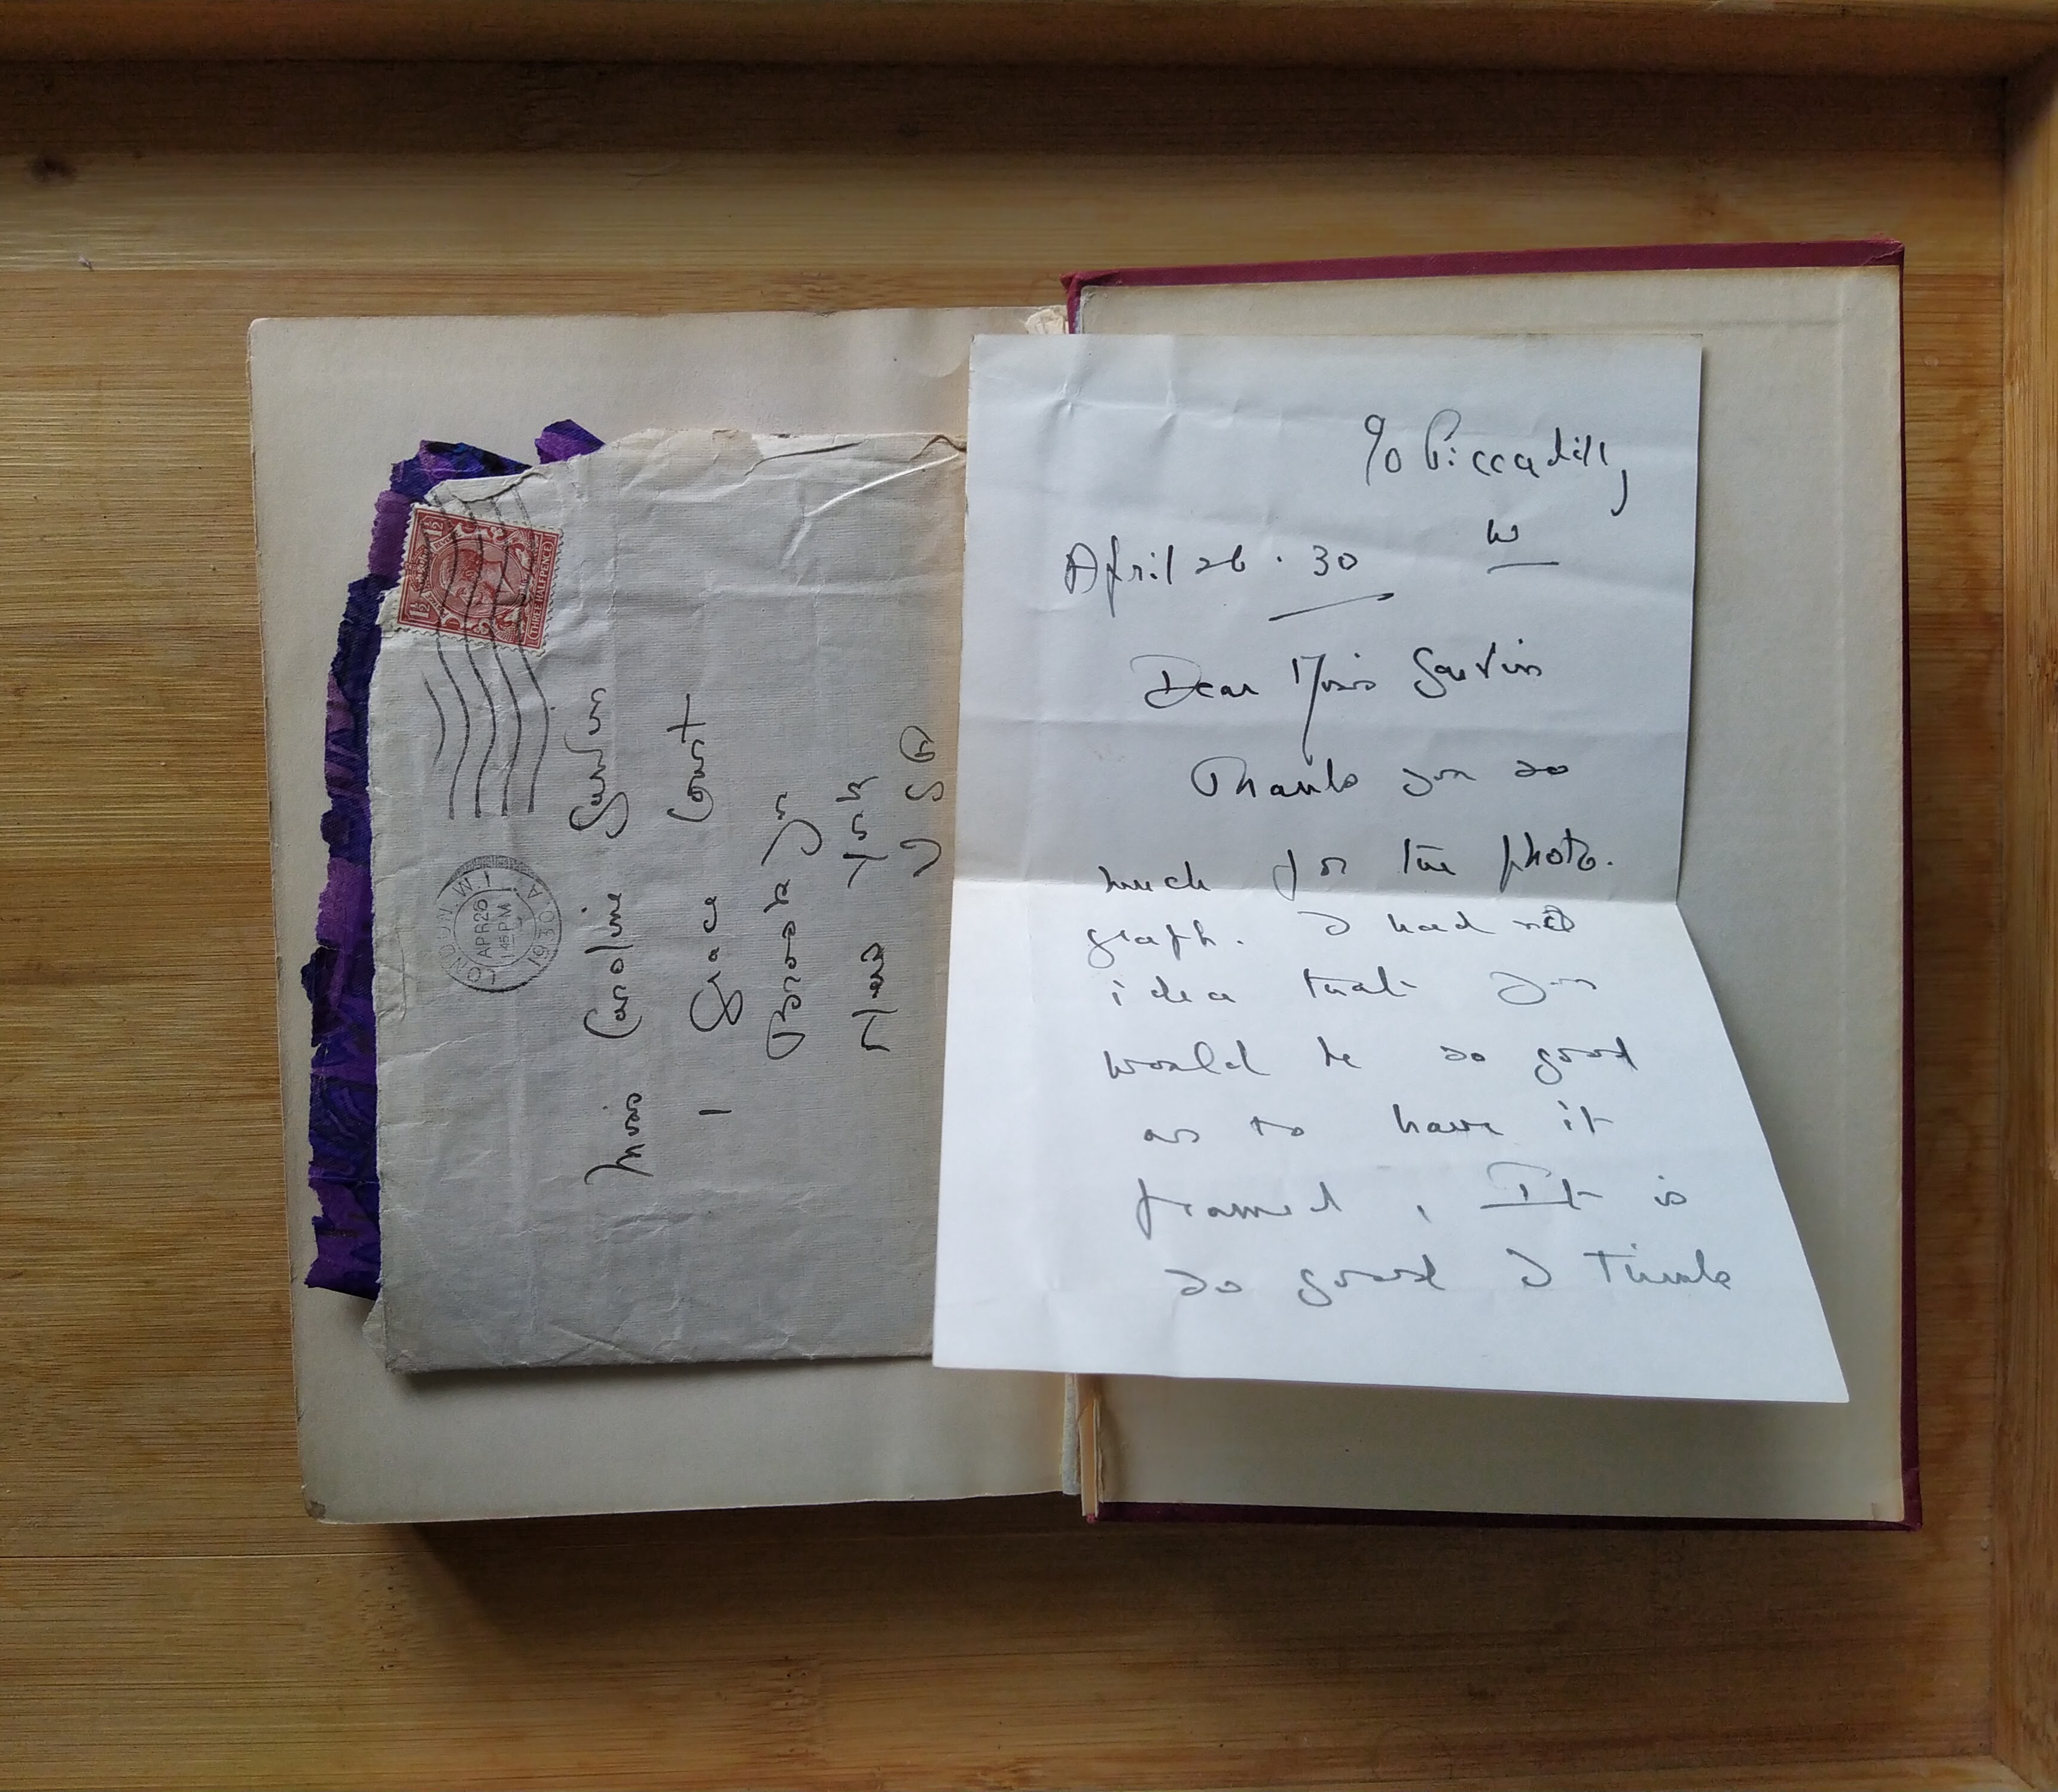 Miss Caroline
1 Grace Court
Brooklyn
New York
U S A
LONDON. W.1.
APR 26
1 45 PM
1930
THREE HALFPENCE
Piccadilly
W
April 26 . 30
Dear Miss
Thank you so
much for the photo.
graph. I had not
idea that you
would be so good
as to have it
framed, It is
so good I think